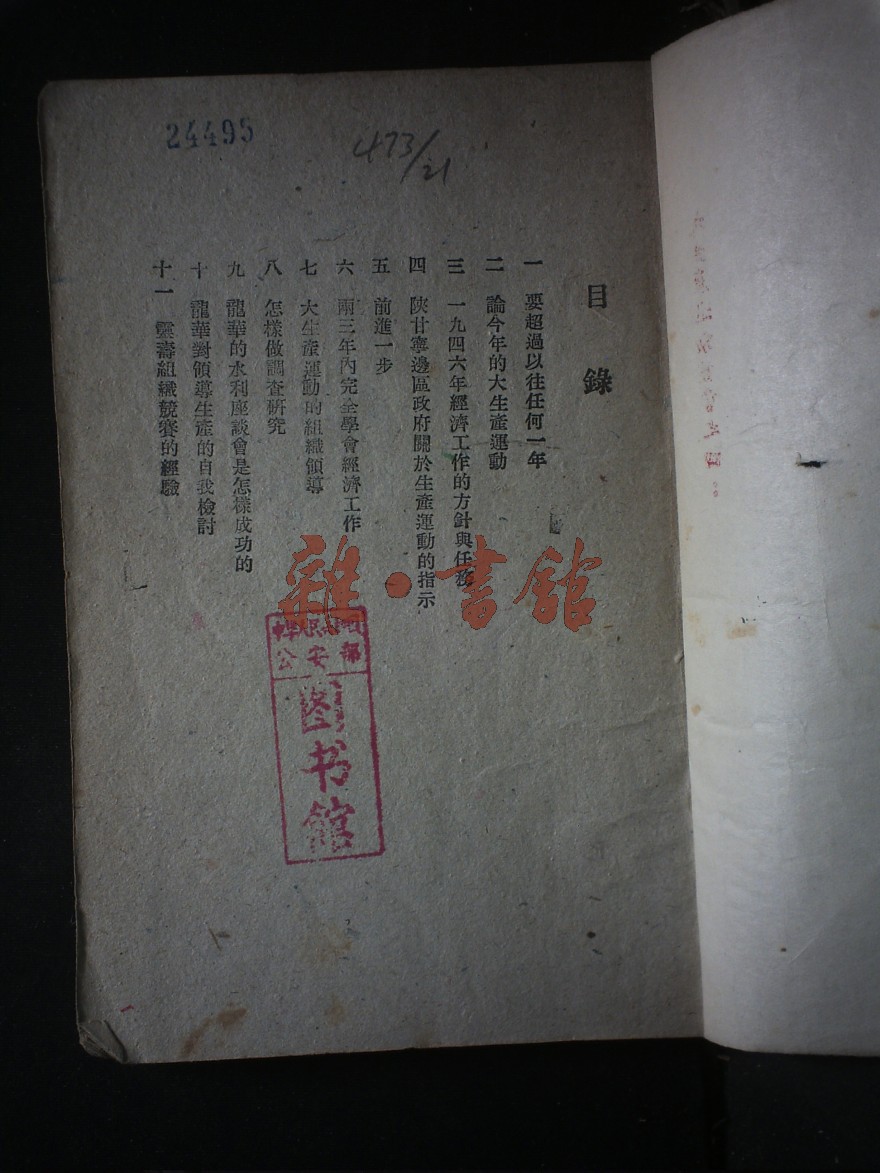 24495
473/21
目錄
一 要超過以往任何一年
二 論今年的大生產運動
三 一九四六年經濟工作的方針與任務
四 陝甘寧邊區政府關於生產運動的指示
五 前進一步
六 兩三年內完全學會經濟工作
七 大生產運動的組織領導
八 怎樣做調查研究
九 龍華的水利座談會是怎樣成功的
十 龍華對領導生產的自我檢討
十一 靈壽組織競賽的經驗
雜·書館
公安部
图书館